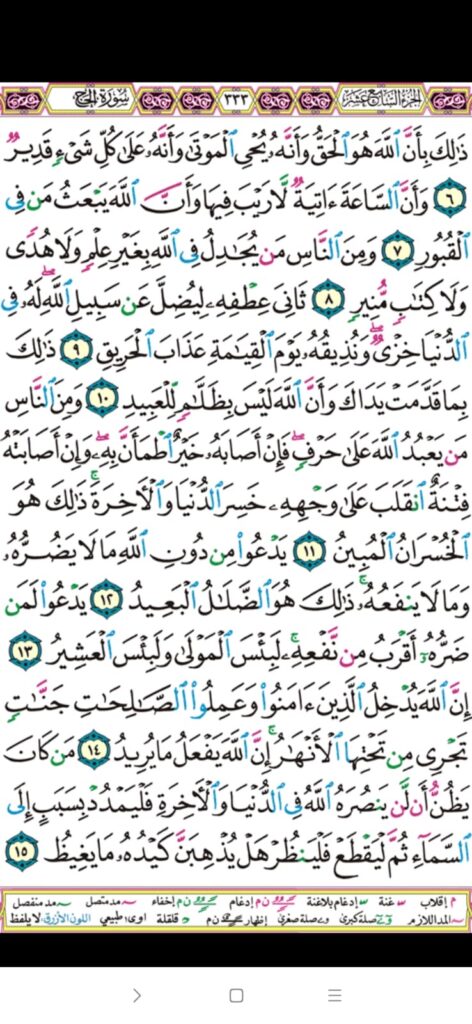 الجزء السابع عشر ٣٣٣ سورة الحج
ذَٰلِكَ بِأَنَّ ٱللَّهَ هُوَ ٱلْحَقُّ وَأَنَّهُۥ يُحْىِ ٱلْمَوْتَىٰ وَأَنَّهُۥ عَلَىٰ كُلِّ شَىْءٍ قَدِيرٌ
٦ وَأَنَّ ٱلسَّاعَةَ ءَاتِيَةٌ لَّا رَيْبَ فِيهَا وَأَنَّ ٱللَّهَ يَبْعَثُ مَن فِى
ٱلْقُبُورِ ٧ وَمِنَ ٱلنَّاسِ مَن يُجَٰدِلُ فِى ٱللَّهِ بِغَيْرِ عِلْمٍ وَلَا هُدًى
وَلَا كِتَٰبٍ مُّنِيرٍ ٨ ثَانِىَ عِطْفِهِۦ لِيُضِلَّ عَن سَبِيلِ ٱللَّهِ لَهُۥ فِى
ٱلدُّنْيَا خِزْىٌ وَنُذِيقُهُۥ يَوْمَ ٱلْقِيَٰمَةِ عَذَابَ ٱلْحَرِيقِ ٩ ذَٰلِكَ
بِمَا قَدَّمَتْ يَدَاكَ وَأَنَّ ٱللَّهَ لَيْسَ بِظَلَّٰمٍ لِّلْعَبِيدِ ١٠ وَمِنَ ٱلنَّاسِ
مَن يَعْبُدُ ٱللَّهَ عَلَىٰ حَرْفٍ فَإِنْ أَصَابَهُۥ خَيْرٌ ٱطْمَأَنَّ بِهِۦ وَإِنْ أَصَابَتْهُ
فِتْنَةٌ ٱنقَلَبَ عَلَىٰ وَجْهِهِۦ خَسِرَ ٱلدُّنْيَا وَٱلْءَاخِرَةَ ۚ ذَٰلِكَ هُوَ
ٱلْخُسْرَانُ ٱلْمُبِينُ ١١ يَدْعُوا۟ مِن دُونِ ٱللَّهِ مَا لَا يَضُرُّهُۥ
وَمَا لَا يَنفَعُهُۥ ۚ ذَٰلِكَ هُوَ ٱلضَّلَٰلُ ٱلْبَعِيدُ ١٢ يَدْعُوا۟ لَمَن
ضَرُّهُۥٓ أَقْرَبُ مِن نَّفْعِهِۦ ۚ لَبِئْسَ ٱلْمَوْلَىٰ وَلَبِئْسَ ٱلْعَشِيرُ ١٣
إِنَّ ٱللَّهَ يُدْخِلُ ٱلَّذِينَ ءَامَنُوا۟ وَعَمِلُوا۟ ٱلصَّٰلِحَٰتِ جَنَّٰتٍ
تَجْرِى مِن تَحْتِهَا ٱلْأَنْهَٰرُ ۚ إِنَّ ٱللَّهَ يَفْعَلُ مَا يُرِيدُ ١٤ مَن كَانَ
يَظُنُّ أَن لَّن يَنصُرَهُ ٱللَّهُ فِى ٱلدُّنْيَا وَٱلْءَاخِرَةِ فَلْيَمْدُدْ بِسَبَبٍ إِلَى
ٱلسَّمَآءِ ثُمَّ لْيَقْطَعْ فَلْيَنظُرْ هَلْ يُذْهِبَنَّ كَيْدُهُۥ مَا يَغِيظُ ١٥
م إقلاب غنة إدغام بلاغنة ن م إدغام ن م إخفاء مد متصل مد منفصل
المد اللازم صلة كبرى صلة صغرى إظهار ن م قلقلة اوى طبيعي اللون الأزرق لا يلفظ